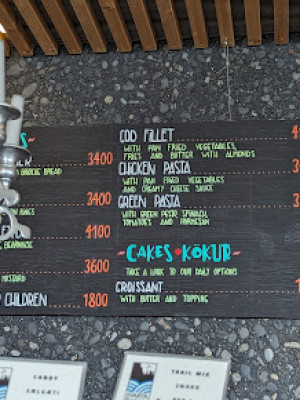 3400
BREAD
3400
4100
3600
CHILDREN 1800
COD FILLET
WITH PAN FRIED VEGETABLES,
FRIES AND BUTTER WITH ALMONDS
CHICKEN PASTA
WITH PAN FRIED VEGETABLES
AND CREAMY CHEESE SAUCE
GREEN PASTA
WITH GREEN PESTO SPINACH,
TOMATOES AND PARMESAN
-CAKES KÖKUR-
TAKE A LOOK TO OUR DAILY OPTIONS
CROISSANT
WITH BUTTER AND TOPPING
CANDY
TRAIL MIX
SNAKK